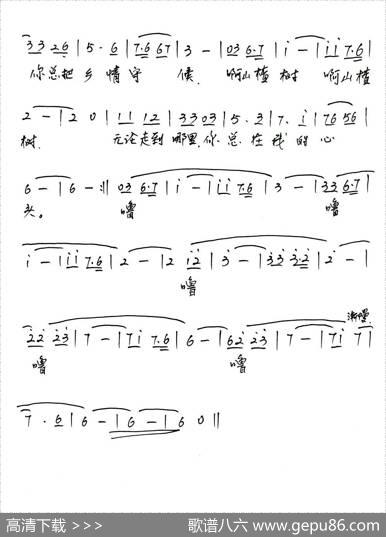 3 3 2 6 | 5 · 6 | 7·6 6 7 | 3 - | 0 3 6·7 | i - | i i 7·6 |
你总把乡情守候. 啊山楂树 啊山楂
2 - | 2 0 | 1 1 1 2 | 3 3 0 3 | 5 · 3 | 7 · i | 7 6 5 6 |
树. 无论走到哪里你总在我的心
6 - | 6 - :|| 0 3 6·7 | i - | i i 7·6 | 3 - | 3 3 6·7 |
头。 噜 噜
i - | i i 7·6 | 2 - | 2 i 2 | 3 - | 3 3 3·2 | 2 - |
噜
2 2 2 3 | 7 - | 7 i 7·6 | 6 - | 6 2 2 3 | 7 - | 7 i 7 |
噜 噜
7 · 6 | 6 - | 6 - | 6 0 ||
高清下载 >>>
歌谱八六 www.gepu86.com